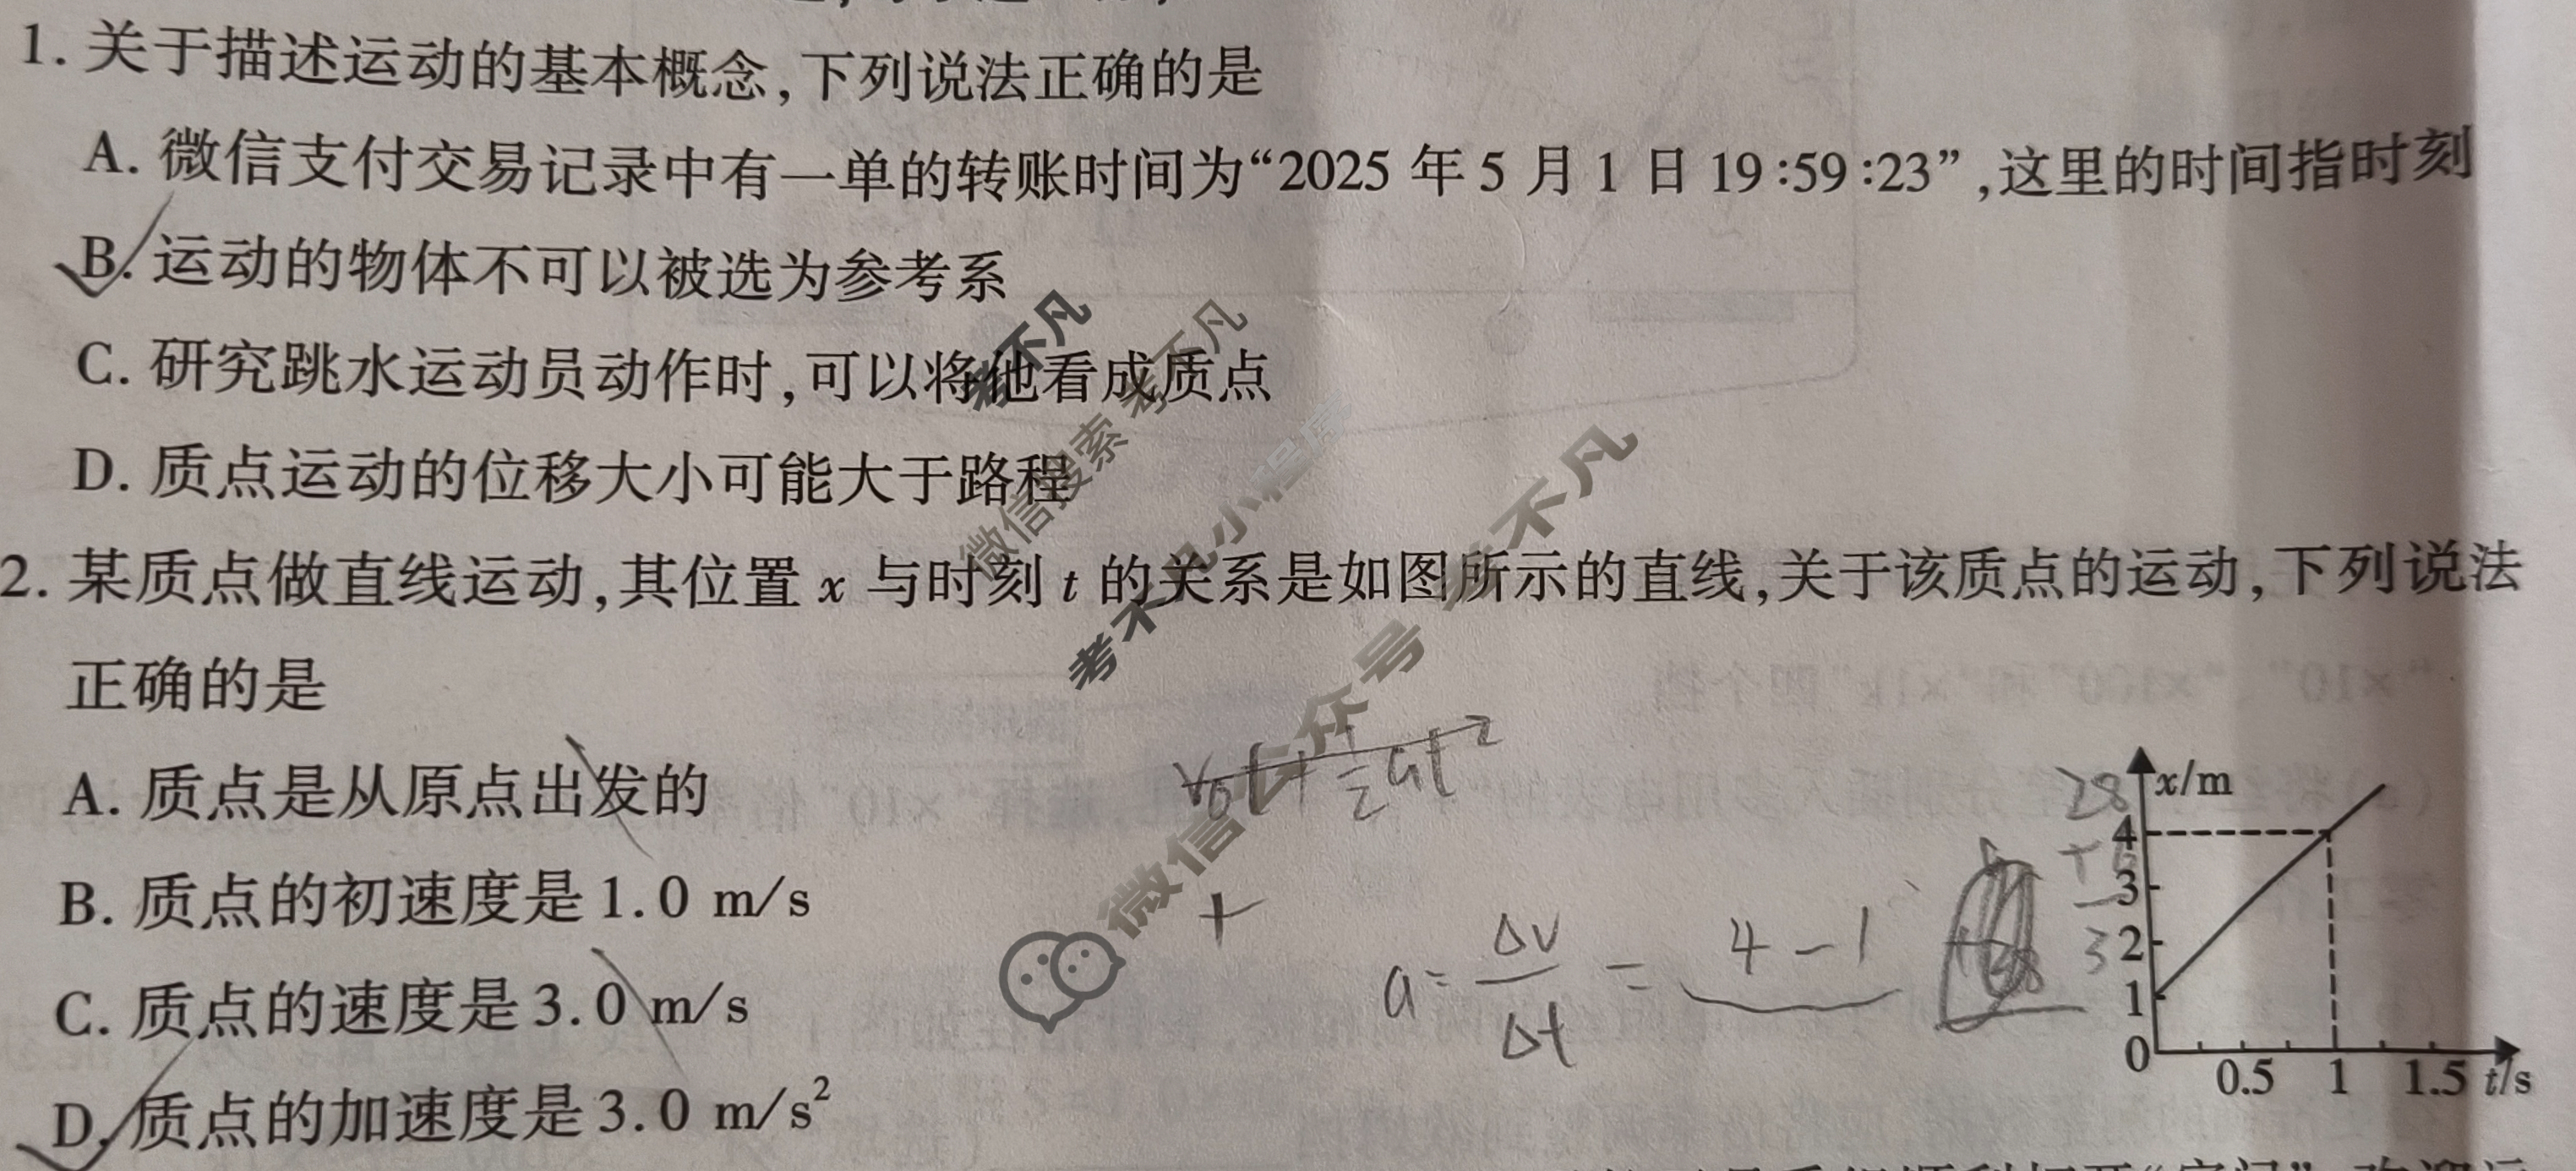 1. 关于描述运动的基本概念,下列说法正确的是
A. 微信支付交易记录中有一单的转账时间为“2025 年 5 月 1 日 19:59:23”,这里的时间指时刻
B. 运动的物体不可以被选为参考系
C. 研究跳水运动员动作时,可以将他看成质点
D. 质点运动的位移大小可能大于路程
2. 某质点做直线运动,其位置 x 与时刻 t 的关系是如图所示的直线,关于该质点的运动,下列说法
正确的是
A. 质点是从原点出发的
B. 质点的初速度是 1.0 m/s
C. 质点的速度是 3.0 m/s
D. 质点的加速度是 3.0 m/s²
v₀t+½at²
+
a=Δv/Δt=4-1
28
3
x/m
4
3
2
1
0
0.5 1 1.5 t/s
考不凡
微信搜索 考不凡
考不凡小程序
微信公众号 考不凡